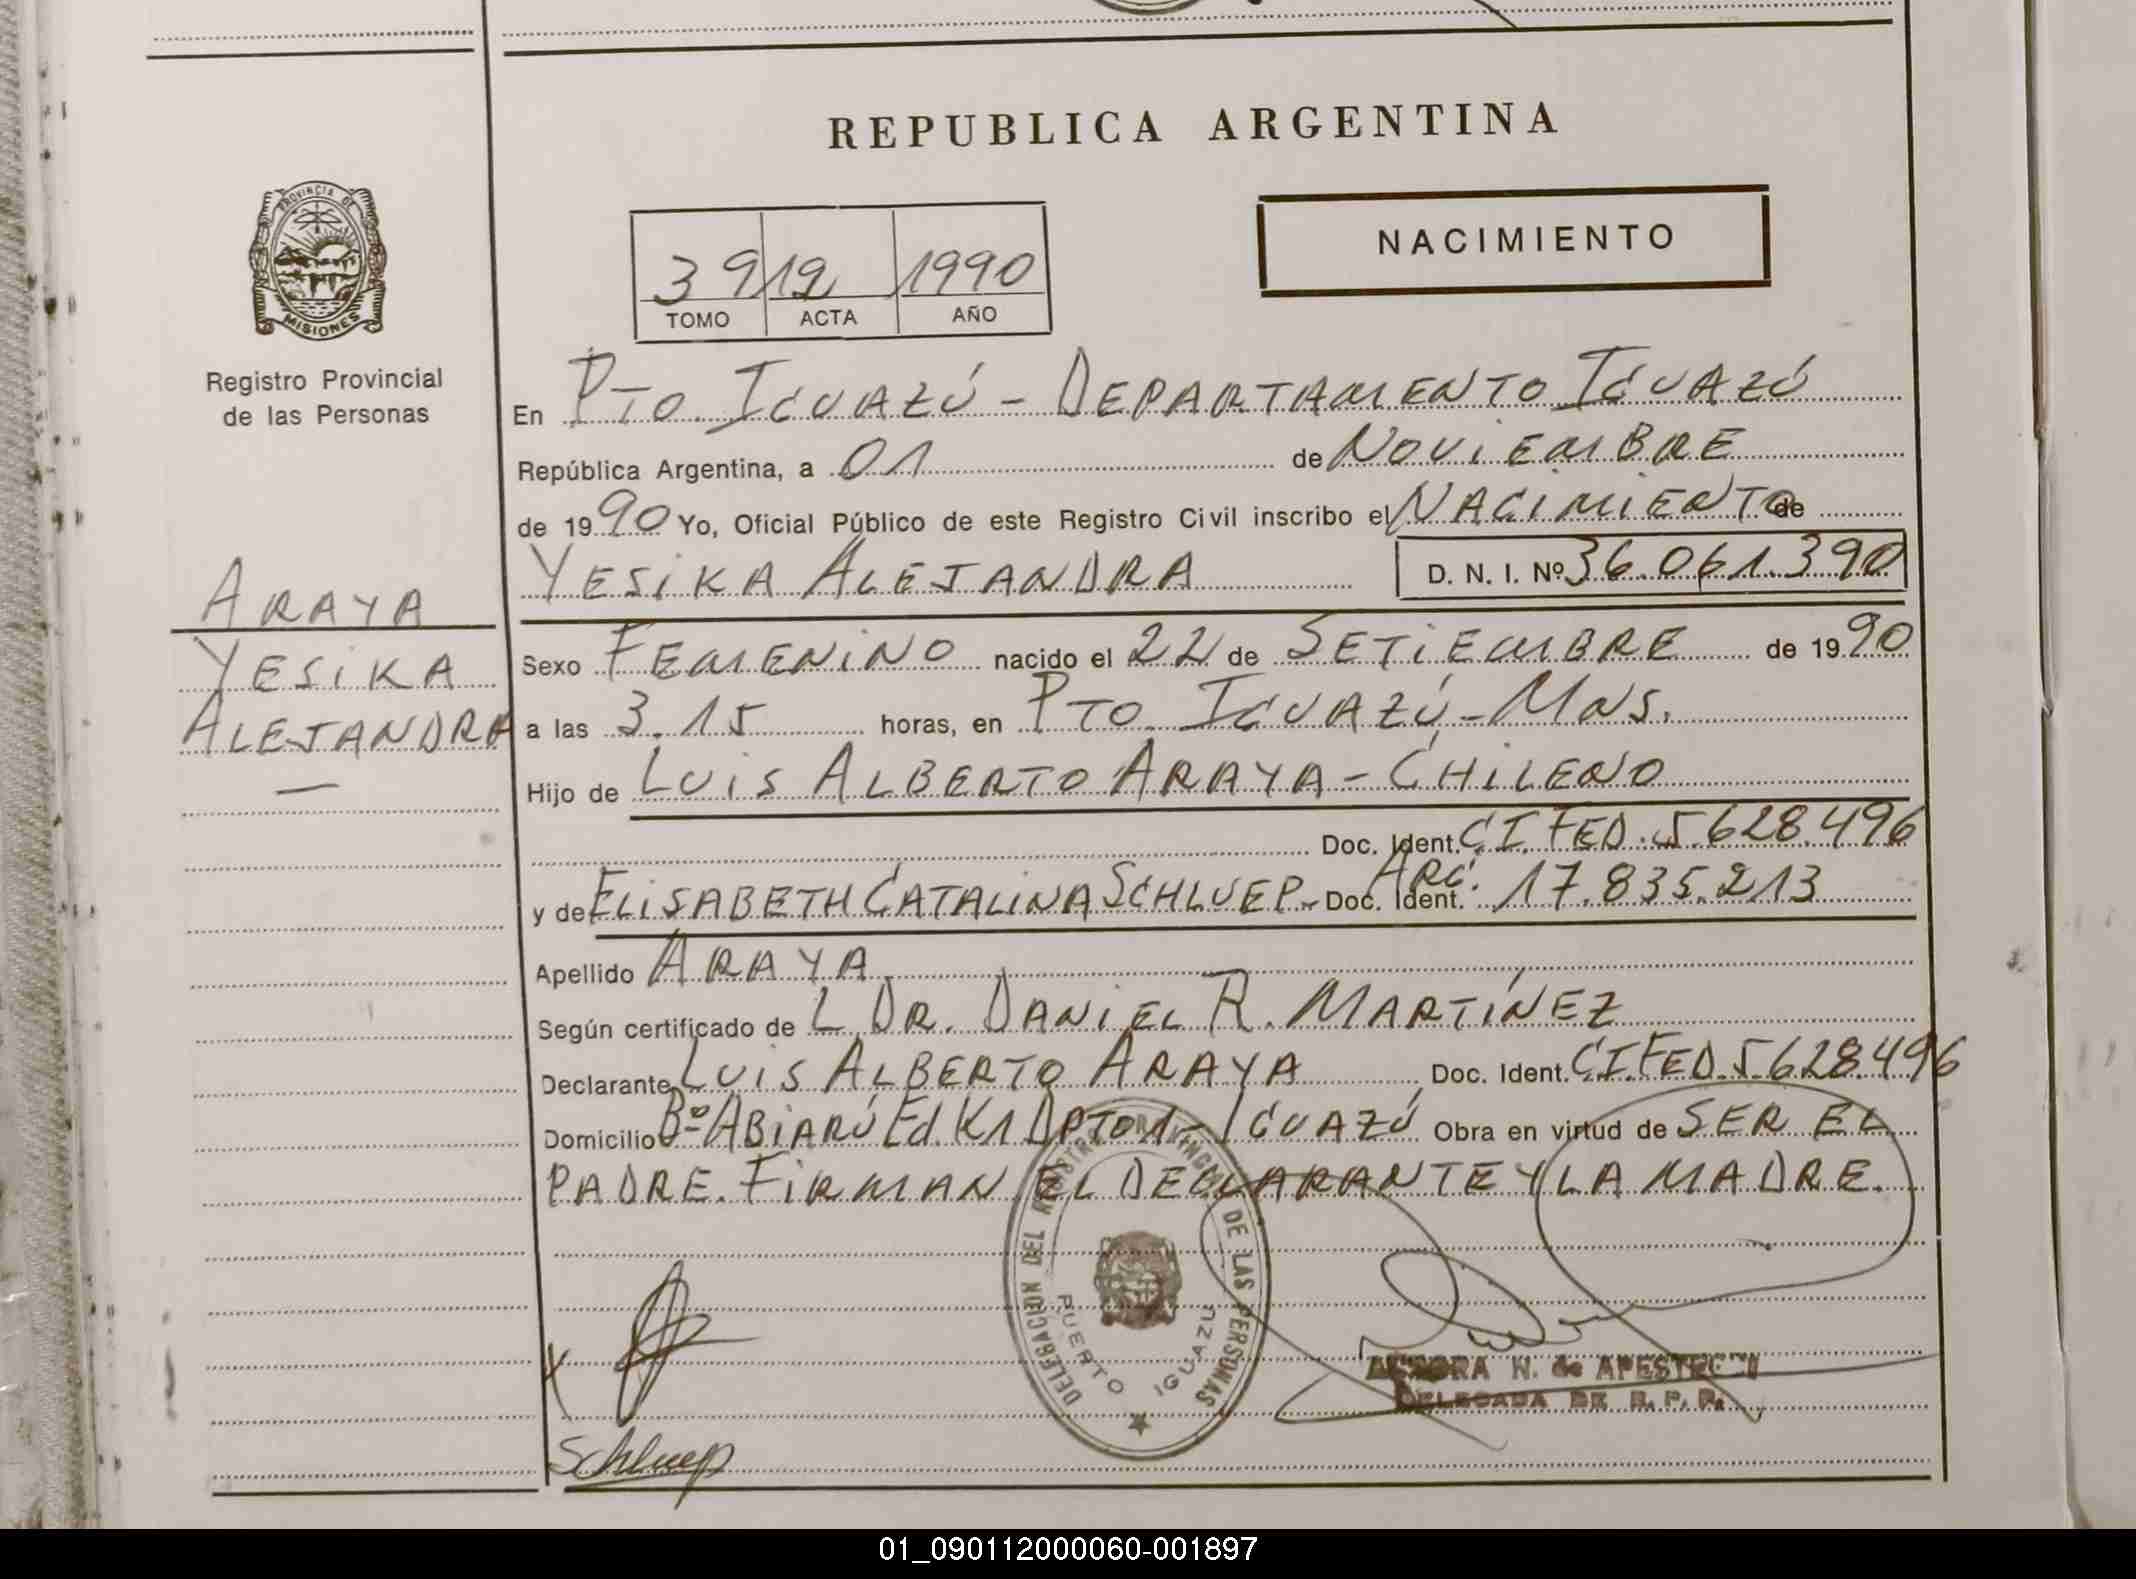 REPUBLICA ARGENTINA
NACIMIENTO
3 9 12 1990
TOMO ACTA AÑO
PROVINCIA DE
MISIONES
Registro Provincial
de las Personas
ARAYA
YESIKA
ALEJANDRA
En PTO. IGUAZÚ - DEPARTAMENTO IGUAZÚ
República Argentina, a 01 de NOVIEMBRE
de 1990 Yo, Oficial Público de este Registro Civil inscribo el NACIMIENTO de
YESIKA ALEJANDRA D. N. I. Nº 36.061.390
Sexo FEMENINO nacido el 22 de SETIEMBRE de 1990
a las 3.15 horas, en PTO. IGUAZÚ - MNS.
Hijo de LUIS ALBERTO ARAYA - CHILENO
Doc. Ident. C.I. FED. 5.628.496
y de ELISABETH CATALINA SCHLUEP - ARG. Doc. Ident. 17.835.213
Apellido ARAYA
Según certificado de L DR. DANIEL R. MARTÍNEZ
Declarante LUIS ALBERTO ARAYA Doc. Ident. C.I. FED. 5.628.496
Domicilio Bº ABIARÚ Ed. K1 DPTO 1 - IGUAZÚ Obra en virtud de SER EL
PADRE. FIRMAN EL DECLARANTE Y LA MADRE.
DELEGACION DEL REGISTRO PROVINCIAL DE LAS PERSONAS
PUERTO IGUAZU
N. de
DELEGADA DE R. P. P.
Schluep
01_090112000060-001897